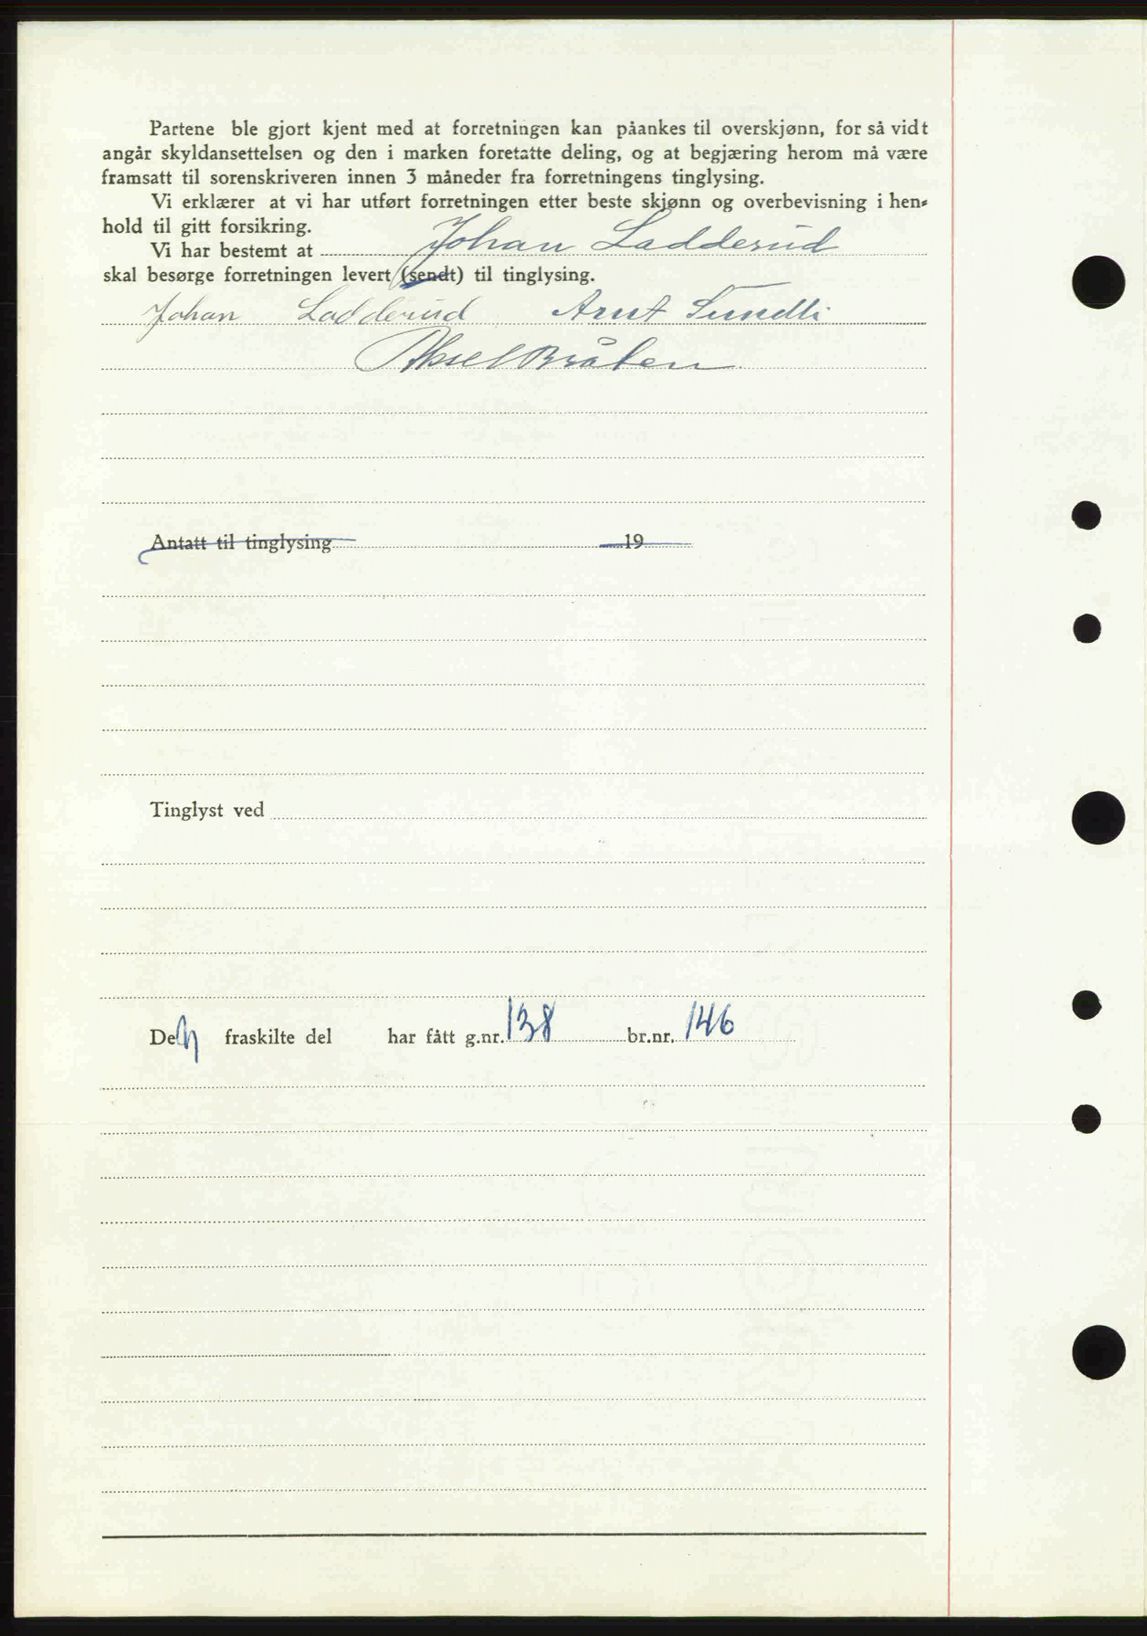 Partene ble gjort kjent med at forretningen kan påankes til overskjønn, for så vidt
angår skyldansettelsen og den i marken foretatte deling, og at begjæring herom må være
framsatt til sorenskriveren innen 3 måneder fra forretningens tinglysing.
Vi erklærer at vi har utført forretningen etter beste skjønn og overbevisning i hen-
hold til gitt forsikring.
Vi har bestemt at Johan Ladderud
skal besørge forretningen levert (sendt) til tinglysing.
Johan Ladderud Arnt Sundli
Aksel Bråten
Antatt til tinglysing 19
Tinglyst ved
Den fraskilte del har fått g.nr. 138 br.nr. 146